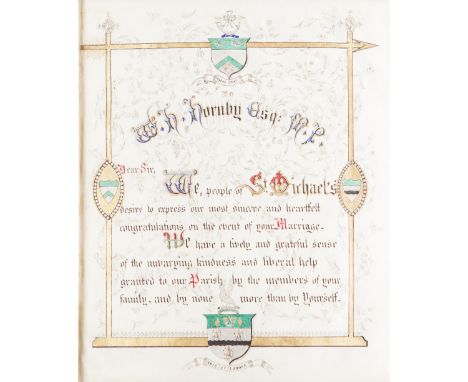 TO
W. H. Hornby Esq: M. P.
Dear Sir,
We, people of St. Michael's
desire to express our most sincere and heartfelt
congratulations on the event of your Marriage.
We have a lively and grateful sense
of the unvarying kindness and liberal help
granted to our Parish by the members of your
family, and by none more than by Yourself.